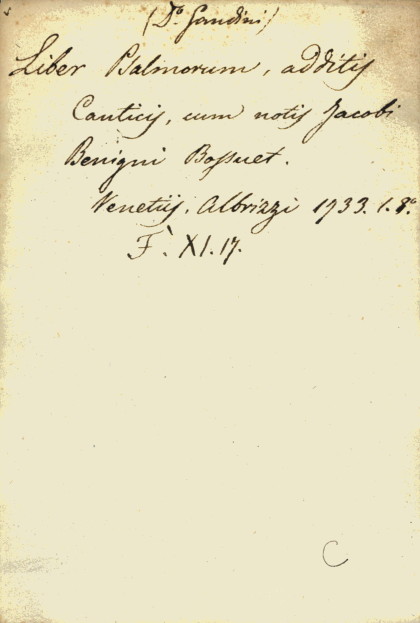 (Do. Gandini)
Liber Psalmorum, additis
Canticis, cum notis Jacobi
Benigni Bossuet.
Venetiis. Albrizzi 1733. 1. 8.o
F. XI. 17.
C